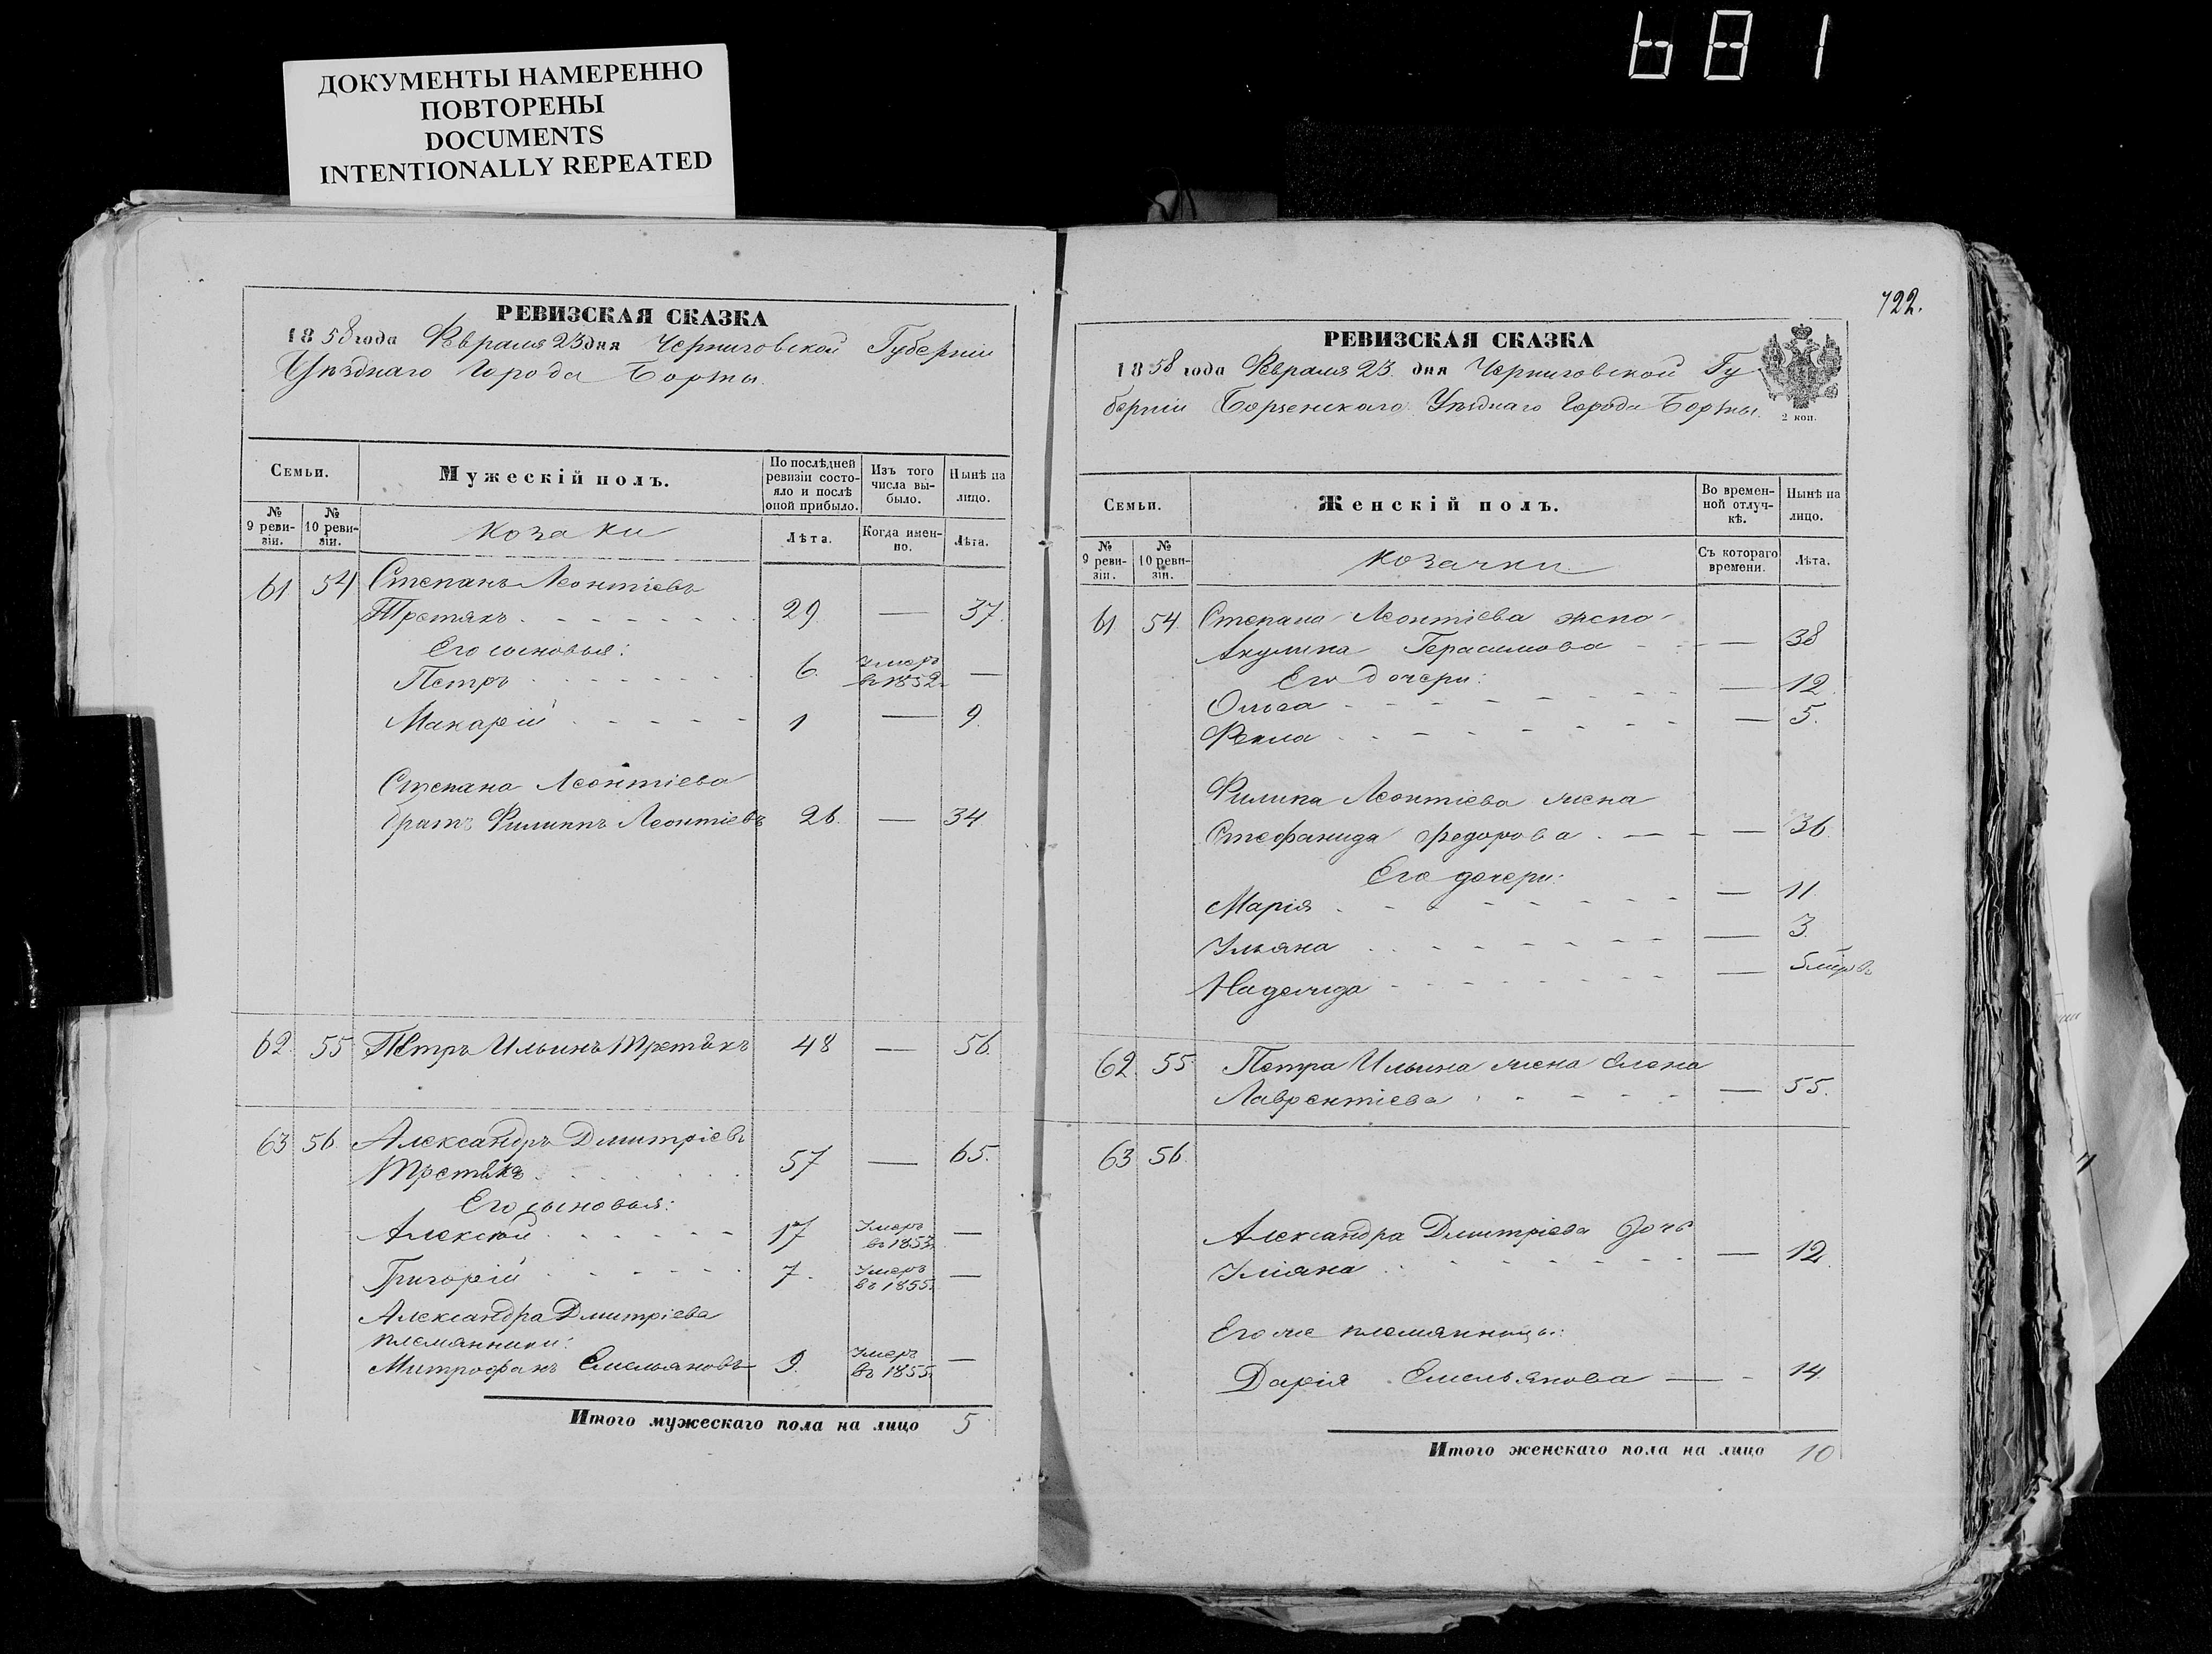 681
ДОКУМЕНТЫ НАМЕРЕННО
ПОВТОРЕНЫ
DOCUMENTS
INTENTIONALLY REPEATED
РЕВИЗСКАЯ СКАЗКА
1858 года Февраля 23 дня Черниговской Губерніи
Уѣзднаго Города Борзны.
Семьи.
Мужескій полъ.
По послѣдней ревизіи состояло и послѣ оной прибыло.
Изъ того числа выбыло.
Нынѣ на лицо.
№ 9 ревизіи.
№ 10 ревизіи.
козаки
Лѣта.
Когда именно.
Лѣта.
61 54 Степанъ Леонтіевъ
Третякъ 29 — 37.
Его сыновья:
Петръ 6. Умеръ въ 1852. —
Макарій 1 — 9.
Степана Леонтіева
братъ Филиппъ Леонтіевъ 26. — 34
62. 55 Петръ Ильинъ Третякъ 48 — 56.
63 56. Александръ Дмитріевъ
Третякъ 57 — 65.
Его сыновья:
Алексѣй 17 Умеръ въ 1853. —
Григорій 7. Умеръ въ 1855. —
Александра Дмитріева
племянники:
Митрофанъ Емельяновъ 9. Умеръ въ 1855. —
Итого мужескаго пола на лицо 5
722.
РЕВИЗСКАЯ СКАЗКА
1858 года Февраля 23. дня Черниговской Гу
берніи Борзенскаго Уѣзднаго Города Борзны.
2 коп.
Семьи.
Женскій полъ.
Во временной отлучкѣ.
Нынѣ на лицо.
№ 9 ревизіи.
№ 10 ревизіи.
козачки
Съ котораго времени.
Лѣта.
61 54. Степана Леонтіева жена
Акулина Герасимова — 38
Его дочери:
Ольга — 12.
Фекла — 5.
Филипа Леонтіева жена
Стефанида Федорова — 36.
Его дочери:
Марія — 11.
Ульяна — 3.
Надежда —
62. 55. Петра Ильина жена Елена
Лаврентіева — 55.
63 56.
Александра Дмитріева дочь
Уліяна — 12.
Его же племянницы:
Дарія Емельянова — 14
Итого женскаго пола на лицо 10